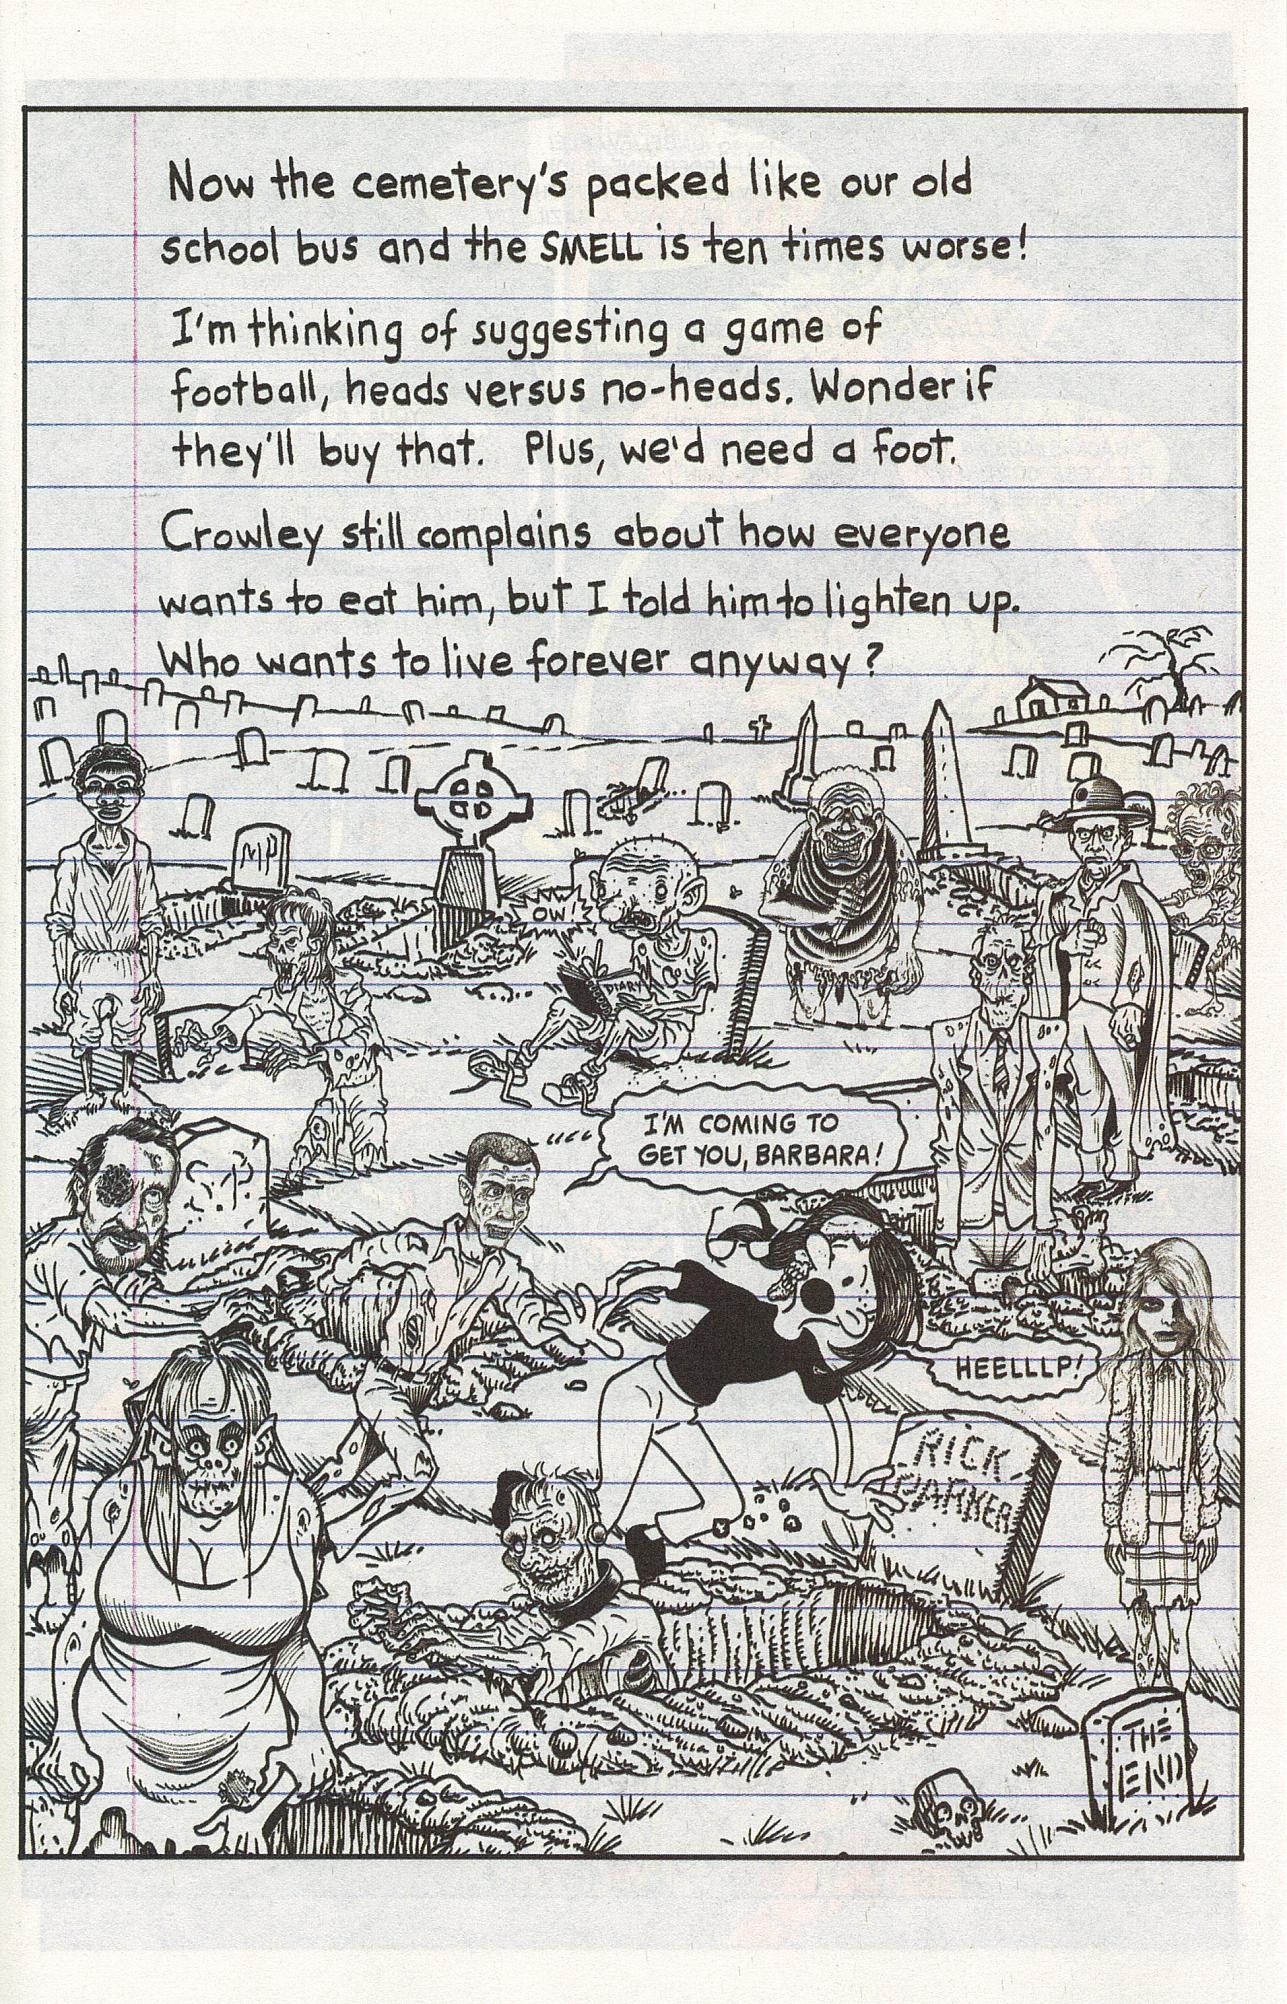 Now the cemetery's packed like our old
school bus and the SMELL is ten times worse!
I'm thinking of suggesting a game of
football, heads versus no-heads. Wonder if
they'll buy that. Plus, we'd need a foot.
Crowley still complains about how everyone
wants to eat him, but I told him to lighten up.
Who wants to live forever anyway?
OW!
DIARY
I'M COMING TO
GET YOU, BARBARA!
HEELLLP!
RICK
PARKER
THE
END